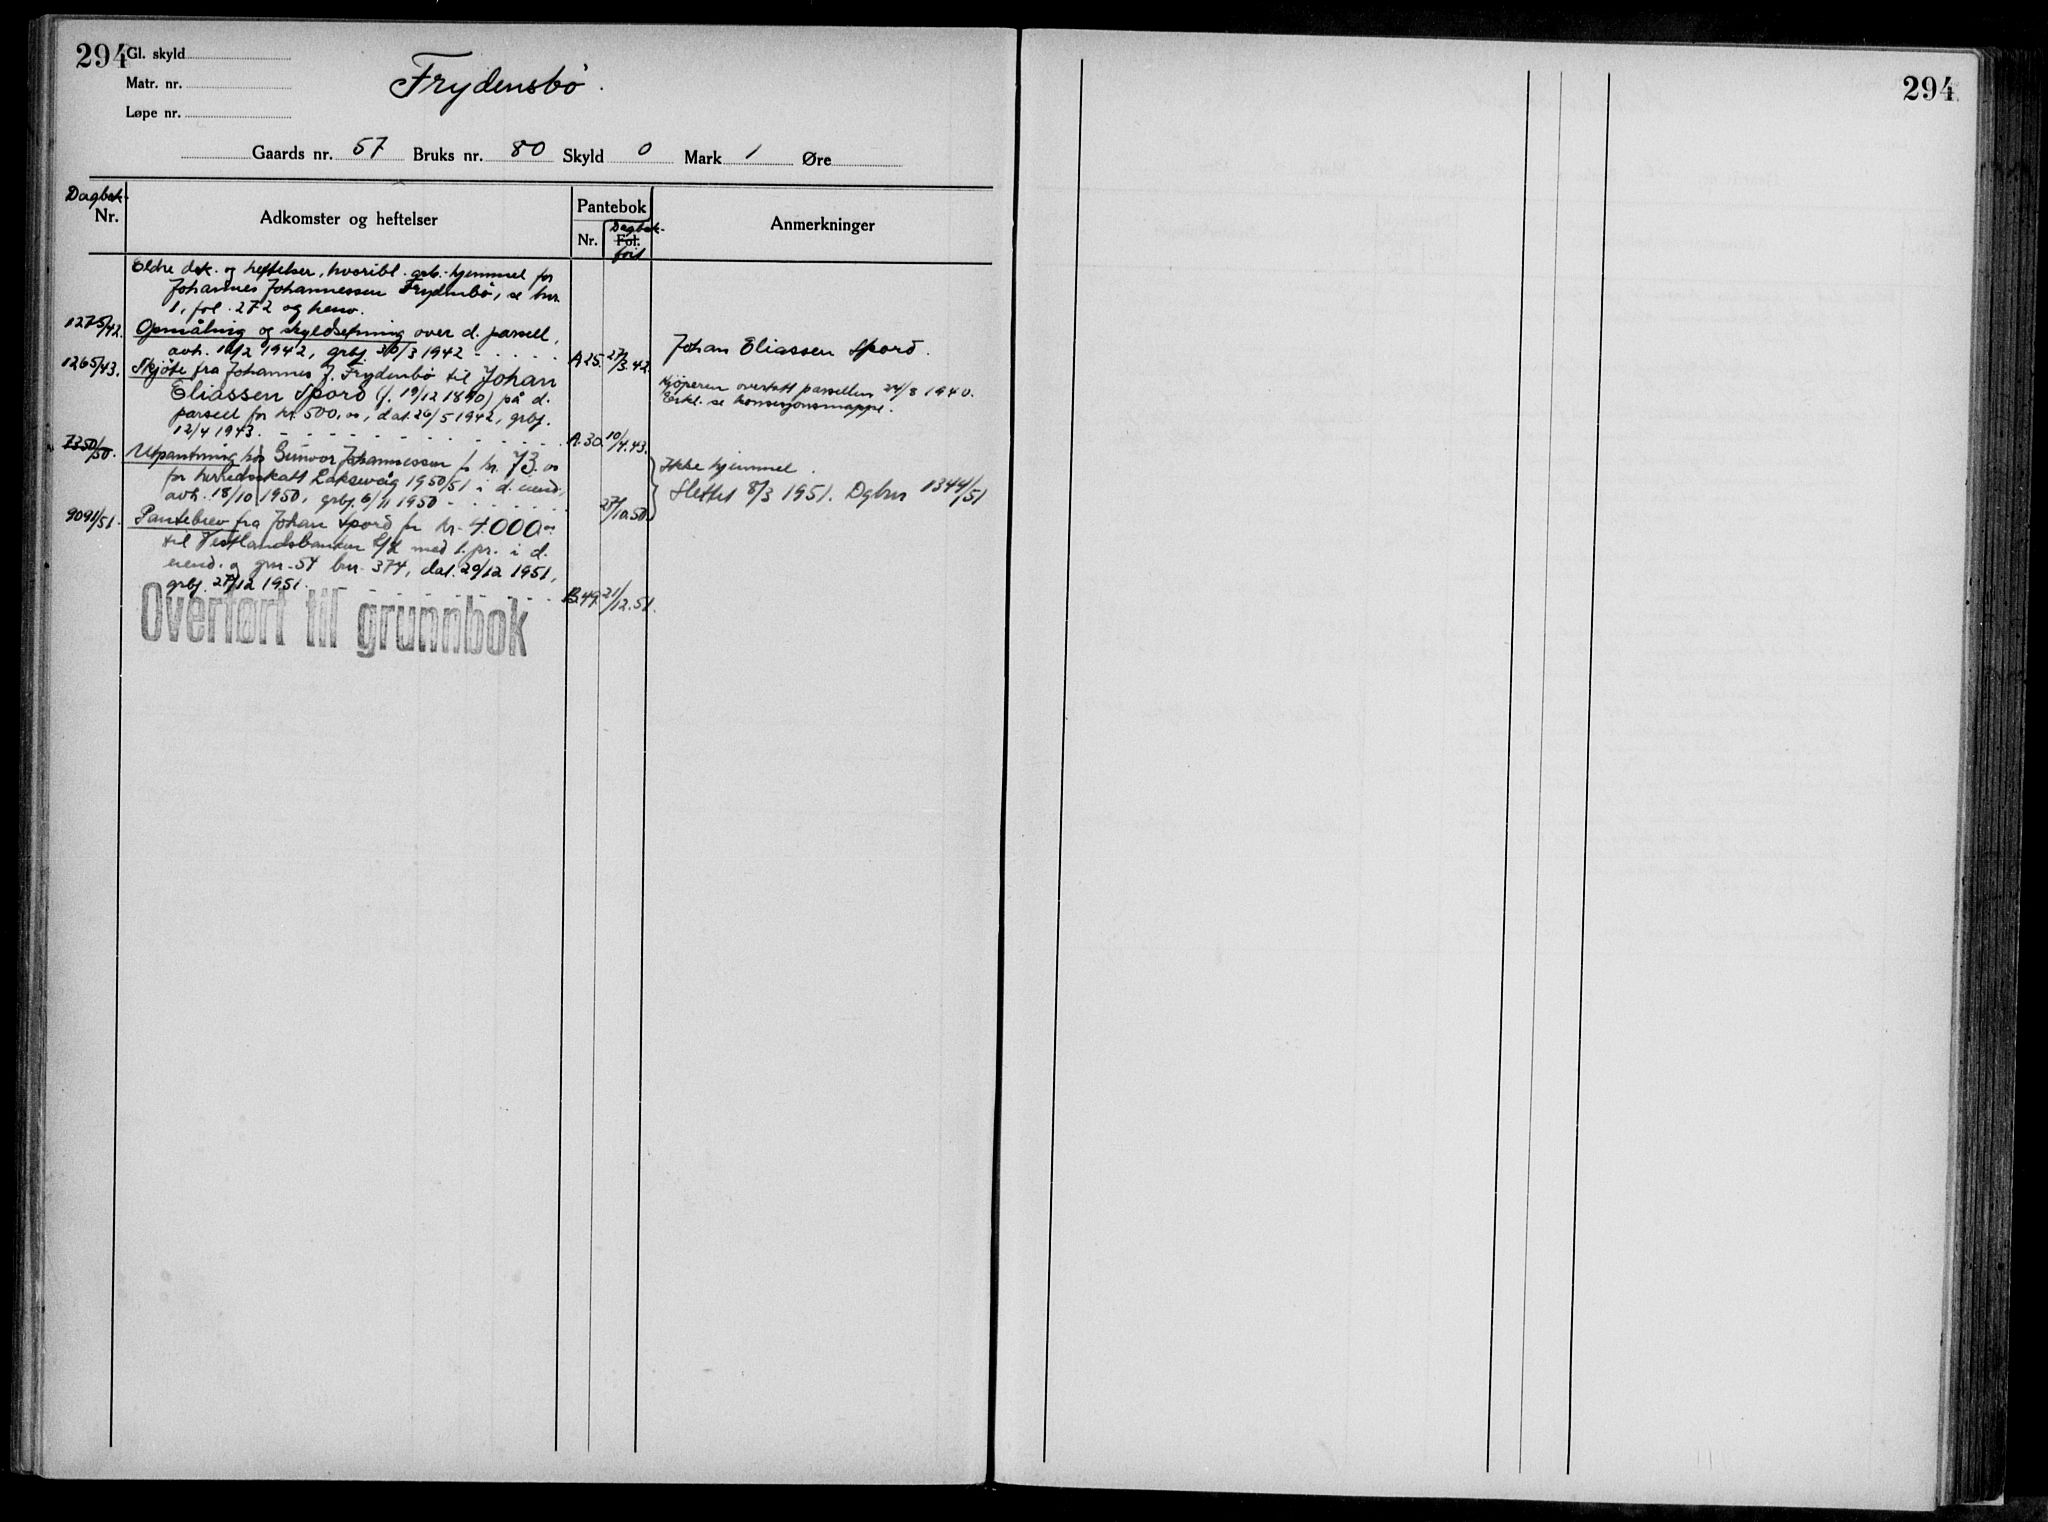 294
Gl. skyld
Matr. nr.
Løpe nr.
Frydensbö.
Gaards nr. 57 Bruks nr. 80 Skyld 0 Mark 1 Øre
Dagbok-
Nr.
Adkomster og heftelser
Pantebok
Nr.
Dagbok-
Fol.
ført
Anmerkninger
Eldre dok. og heftelser, hvoribl. grb. hjemmel for
Johannes Johannessen Frydenbö, se bnr.
1, fol. 272 og henv.
1275/42. Opmåling og skyldsetning over d. parsell,
avh. 1942, grbj. 30/3 1942 A 25. 27/3.42. Johan Eliassen Spord.
1265/43. Skjöte fra Johannes J. Frydenbö til Johan
Eliassen Spord (f. 19/12 1890) på d.
parsell for kr. 500.00, dat. 26/5 1942, grbj.
12/4 1943. A.30. 10/4.43.
Kjöperen overtatt parsellen 24/8 1940.
Erkl. se konsesjonsmappe.
7350/50. Utpantning hos Gunvor Johannessen f. kr. 73.00
for herredsskatt Laksevåg 1950/51 i d. eiend,
avh. 18/10 1950, grbj. 6/11 1950 27/10.50.
Ikke hjemmel.
Slettet 8/3 1951. Dgbnr 1344/51
9091/51. Pantebrev fra Johan Spord for kr. 4.000.00
til Vestlandsbanken L/L med 1. pr. i d.
eiend. og gnr. 54 bnr. 374, dat. 20/12 1951,
grbj. 27/12 1951. B.49. 21/12.51.
Overført til grunnbok
294